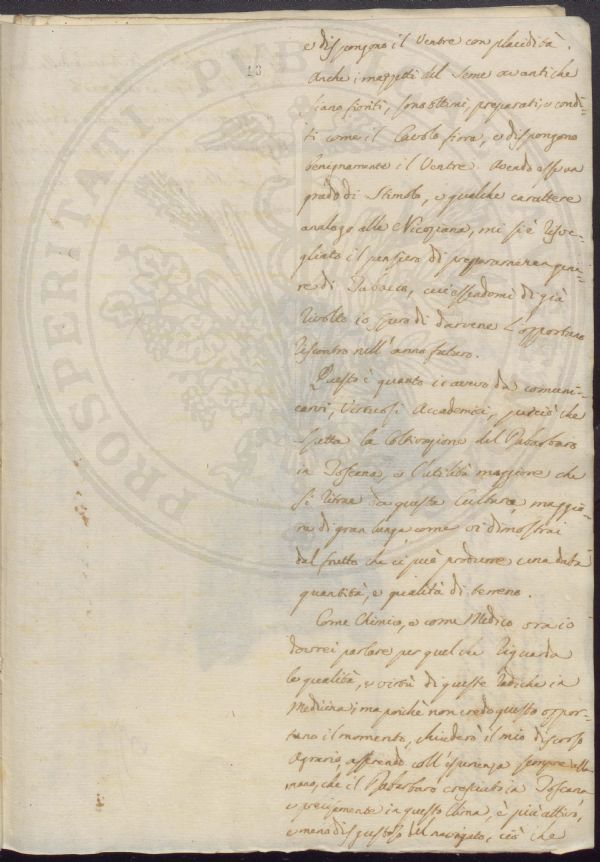 13
e dispongono il Ventre con placidità.
Anche i mazzetti del Seme avanti che
siano fioriti, sono ottimi, preparati, e condi=
ti come il Cavolo fiore, e dispongono
benignamente il Ventre. Avendo esse un
grado di Stimolo, e qualche carattere
analogo alla Nicoziana, mi si è risve=
gliato il pensiero di prepararne un gene=
re di Tabacco, e
rivolto io spero di darvene l'opportuno
riscontro nell'anno futuro.
Questo è quanto io avevo da comuni=
carvi, Virtuosi Accademici, perciò che
spetta la Coltivazione del Rabarbaro
in Toscana, e l'utilità maggiore che
si ritrae da questa Cultura, maggio=
re di gran lunga come vi dimostrai
dal frutto che ci può produrre una data
quantità, e qualità di terreno.
Come Chimico, e come Medico ora io
dovrei parlare per quel che riguarda
le qualità, e virtù di queste radiche in
Medicina; ma poichè non credo questo oppor=
tuno il momento, chiuderò il mio discorso
Agrario, asserendo coll'esperienza sempre alla
mano, che il Rabarbaro cresciuto in Toscana
e precisamente in questo Clima, è più attivo,
e meno disgustoso del navigato, ciò che
PROSPERITATI PUBLICAE